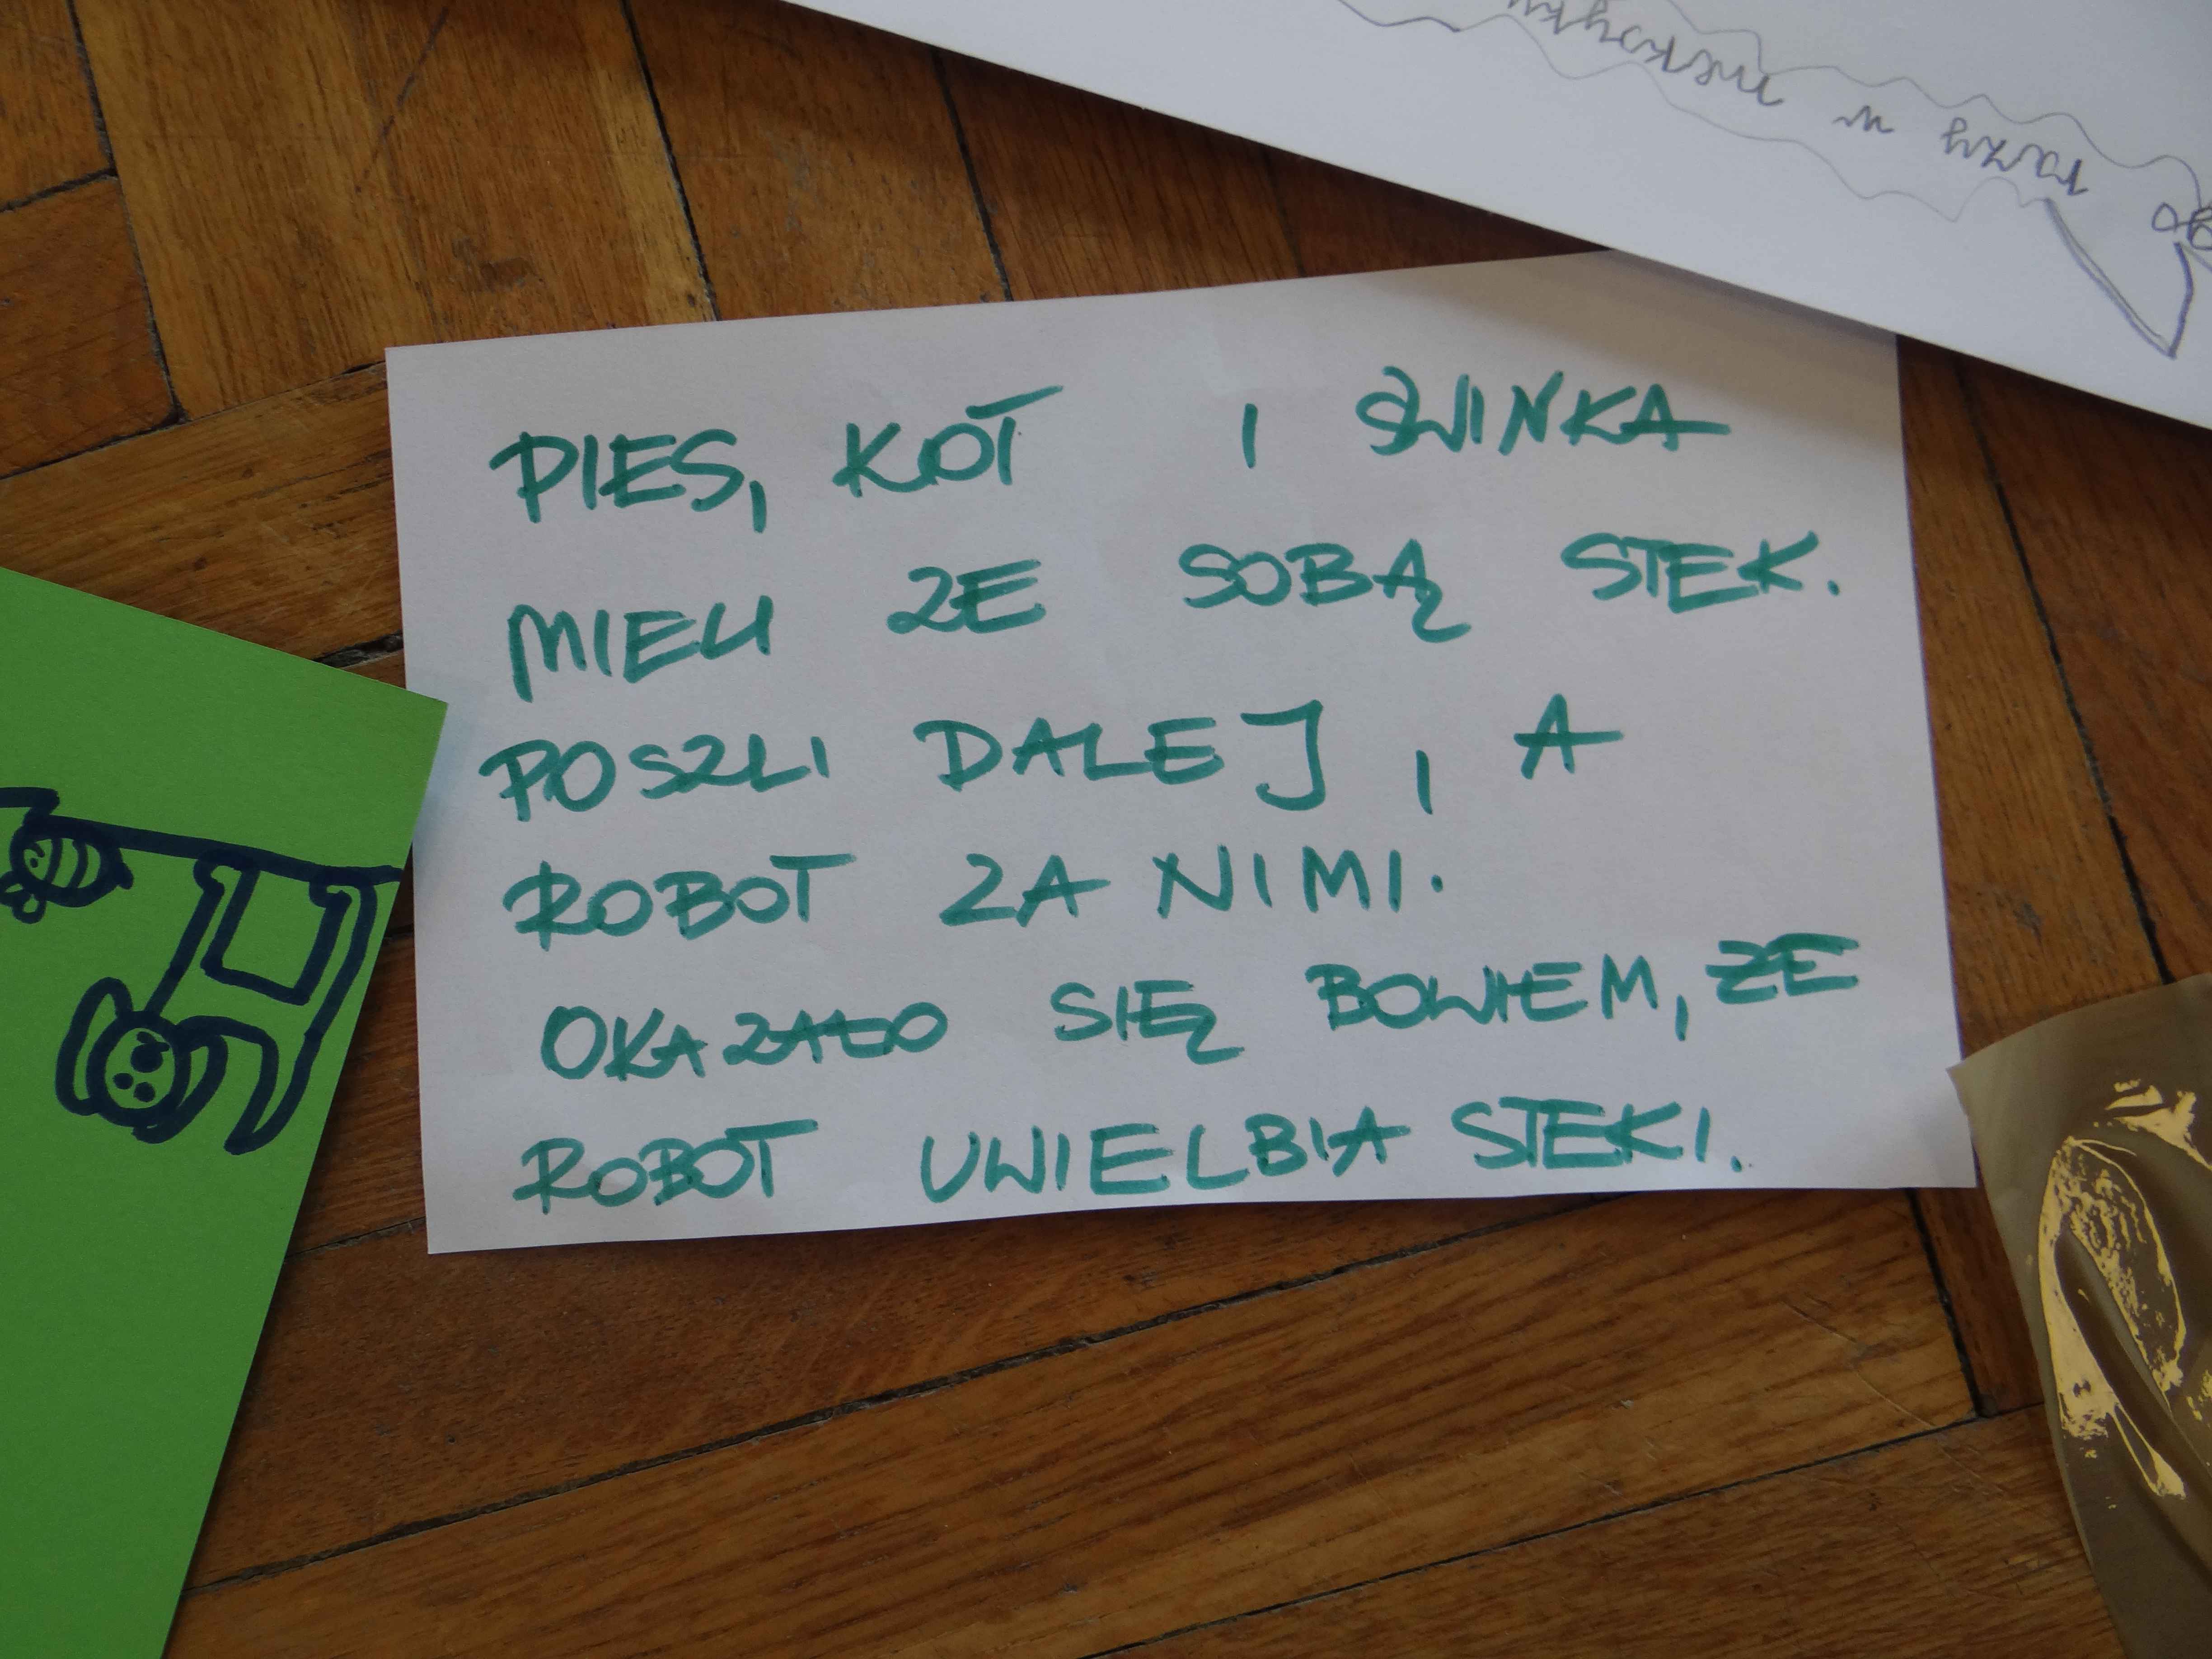 PIES, KOT I ŚWINKA
MIELI ZE SOBĄ STEK.
POSZLI DALEJ, A
ROBOT ZA NIMI.
OKAZAŁO SIĘ BOWIEM, ŻE
ROBOT UWIELBIA STEKI.
razy w